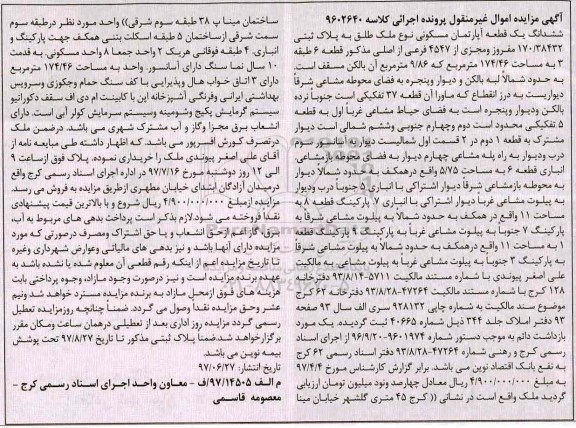 آگهی مزایده اموال غیرمنقول پرونده اجرائی کلاسه ۹۶۰۲۶۴۰
ششدانگ یک قطعه آپارتمان مسکونی نوع ملک طلق به پلاک ثبتی
۱۷۰/۳۸۴۳۲ مفروز ومجزی از ۴۵۴۷ فرعی از اصلی مذکور قطعه ۶ طبقه
۳ به مساحت ۱۷۴/۴۶ مترمربع که ۹/۸۶ مترمربع آن بالکن مسقف است.
به حدود شمالاً لبه بالکن و دیوار وپنجره به فضای محوطه مشاعی شرقاً
دیواریست به درز انقطاع که ماورا آن قطعه ۳۷ تفکیکی است جنوباً نرده
بالکن ودیوار وپنجره است به فضای حیاط مشاعی غرباً اول به قطعه
۵ تفکیکی محدود است دوم وچهارم جنوبی وششم شمالی است دیوار
مشترک به قطعه ۱ دوم در ۲ قسمت اول شمالیست دیواریست سوم
درب ودیوار به راه پله مشاعی چهارم دیوار به فضای محوطه مشاعی،
انباری قطعه ۶ به مساحت ۵/۷۵ واقع درهمکف به حدود شمالاً دیوار
به محوطه بازمشاعی شرقاً دیوار اشتراکی با انباری ۵ جنوباً درب ودیوار
به پیلوت مشاعی غرباً دیوار اشتراکی با انباری ۷ پارکینگ قطعه ۸ به
مساحت ۱۱ واقع در همکف به حدود شمالاً به پیلوت مشاعی شرقاً به
پارکینگ ۷ جنوباً به پیلوت مشاعی غرباً به پارکینگ ۹ پارکینگ قطعه
۱ به مساحت ۱۱ واقع درهمکف به حدود شمالاً به پیلوت مشاعی شرقاً
به پارکینگ ۳ جنوباً به پیلوت مشاعی غرباً به پیلوت مشاعی. به مالکیت
علی اصغر پیوندی با شماره مستند مالکیت ۵۷۱۱-۹۳/۸/۱۴ دفترخانه
۱۲۸ کرج با شماره مستند مالکیت ۴۷۲۶۴-۹۳/۸/۲۸ دفترخانه ۶۲ کرج
موضوع سند مالکیت به شماره چاپی ۹۲۸۱۳۲ سری الف سال ۹۳ صفحه
۹۳ دفتر املاک جلد ۳۴۴ ذیل شماره ۴۰۶۶۵ ثبت گردیده. یک مورد
بازداشت دائم به موجب دستور شماره ۹۶۰۱۹۷۴-۹۶/۹/۲۰ از اجرای اسناد
رسمی کرج و رهنی شماره ۴۷۲۶۴-۹۳/۸/۲۸ دفتر اسناد رسمی ۶۲ کرج
به نفع بانک اقتصاد نوین می باشد. برابر گزارش کارشناس مورخ ۹۷/۴/۴
به مبلغ ۴/۹۰۰/۰۰۰/۰۰۰ ریال معادل چهارصد ونود میلیون تومان ارزیابی
گردید ملک واقع است در نشانی (( کرج ۴۵ متری گلشهر خیابان مینا
ساختمان مینا پ ۳۸ طبقه سوم شرقی)) واحد مورد نظر درطبقه سوم
سمت شرقی ازساختمان ۵ طبقه اسکلت بتنی همکف جهت پارکینگ و
انباری، ۴ طبقه فوقانی هریک ۲ واحد جمعا ۸ واحد مسکونی. به قدمت
۱۰ سال نما سنگ دارای آسانسور. واحد به مساحت ۱۷۴/۴۶ مترمربع
دارای ۳ اتاق خواب هال وپذیرایی با کف سنگ حمام وجکوزی وسرویس
بهداشتی ایرانی وفرنگی آشپزخانه اپن با کابینت ام دی اف سقف دکوراتیو
سیستم گرمایش پکیج وشومینه وسیستم سرمایش کولر آبی است. دارای
انشعاب برق مجزا وگاز و آب مشترک شهری می باشد. درضمن ملک
درتصرف کورش افسرپور می باشد. که اظهار داشته طی مبایعه نامه از
آقای علی اصغر پیوندی ملک را خریداری نموده. پلاک فوق ازساعت ۹
الی ۱۲ روز دوشنبه مورخ ۹۷/۷/۱۶ در اداره اجرای اسناد رسمی کرج واقع
درمیدان آزادگان ابتدای خیابان مطهری ازطریق مزایده به فروش می رسد.
مزایده ازمبلغ ۴/۹۰۰/۰۰۰/۰۰۰ ریال شروع و با بالاترین قیمت پیشنهادی
نقداً فروخته می شود. لازم بذکر است پرداخت بدهی های مربوط به آب،
برق، گاز اعم از حق انشعاب و یا حق اشتراک ومصرف درصورتی که مورد
مزایده دارای آنها باشد و نیز بدهی های مالیاتی وعوارض شهرداری وغیره
تا تاریخ مزایده اعم از اینکه رقم قطعی آن معلوم شده یا نشده باشد به
عهده برنده مزایده است و نیز درصورت وجود مازاد، وجوه پرداختی بابت
هزینه های فوق ازمحل مازاد به برنده مزایده مسترد خواهد شد ونیم
عشر وحق مزایده نقداً وصول می گردد. ضمناً چنانچه روزمزایده تعطیل
رسمی گردد مزایده روز اداری بعد از تعطیلی درهمان ساعت ومکان مقرر
برگزار خواهد شد. ضمناً پلاک ثبتی مذکور تا تاریخ ۹۷/۸/۲۷ تحت پوشش
بیمه نوین می باشد.
تاریخ انتشار: ۹۷/۰۶/۲۷
م الف ۹۷/۱۴۵۰۵/ف - معاون واحد اجرای اسناد رسمی کرج -
معصومه قاسمی